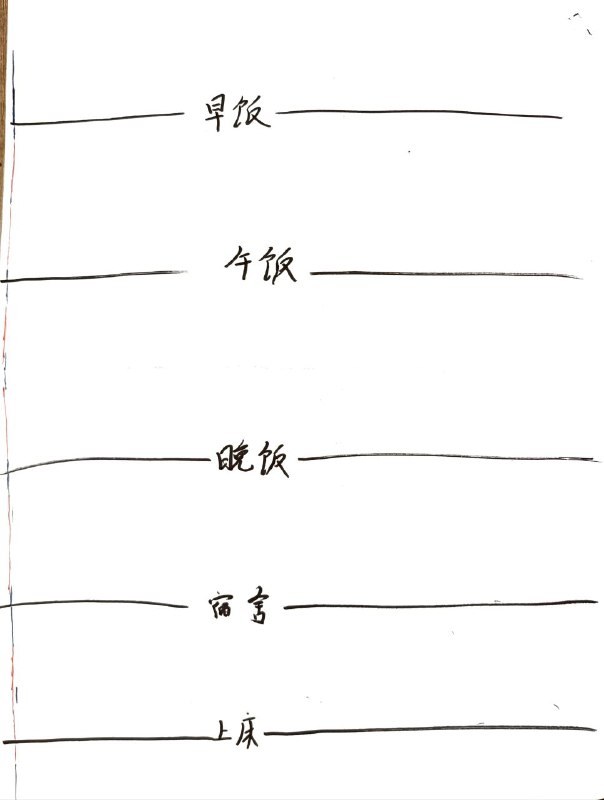 早饭
午饭
晚饭
宿舍
上床